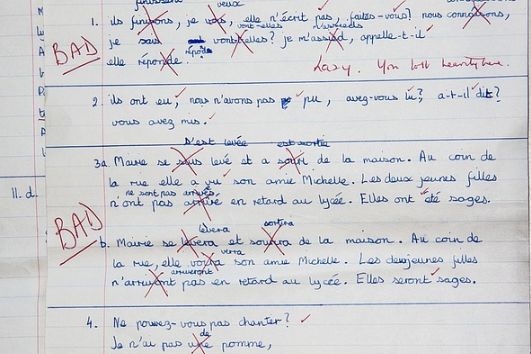 veux
1. ils funyons, je vois, elle n'écrit pas, faites-vous? nous connaitions,
vont-elles
je sais vont-elles? je m'assied, appelle-t-il
BAD
répond
elle réponde.
Lazy. You
2. ils ont eu, nous n'avons pas pu, avez-vous lu? a-t-il dit?
vous avez mis.
s'est levée est sortie
3a Marie se sous levé et a souri de la maison. Au coin de
la rue elle a vu son amie Michelle. Les deux jeunes filles
ne sont pas arrivés
11. d.
n'ont pas arrivé en retard au lycée. Elles ont été sages.
BAD
lèvera sortira
b. Marie se lèvera et sourira de la maison. Au coin de
verra
la rue, elle voira son amie Michelle. Les deux jeunes filles
arriveront
n'arrivont pas en retard au lycée. Elles seront sages.
4. Ne pouvez-vous pas chanter?
de
Je n'ai pas une pomme,